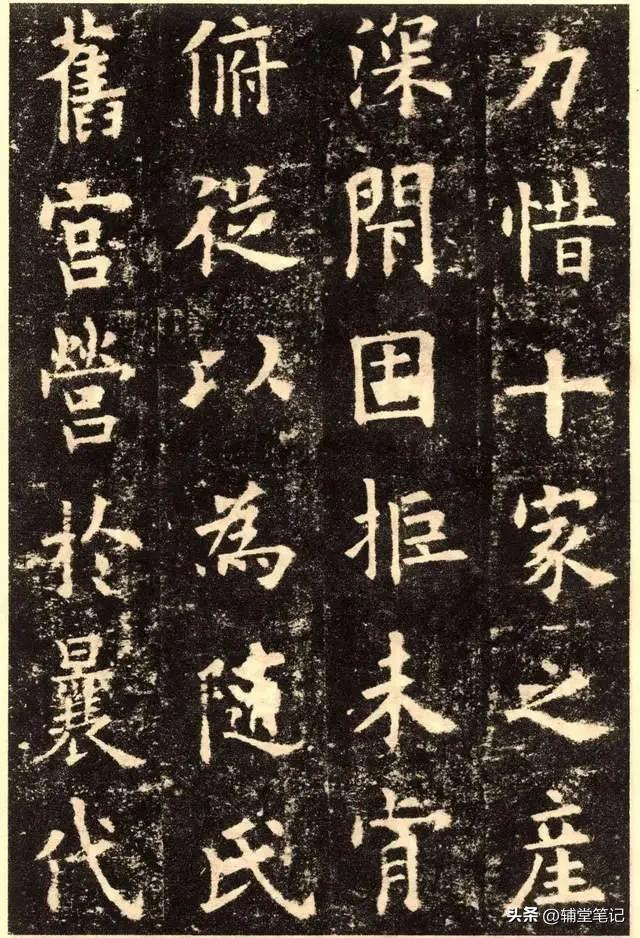 力惜十家之産
深閇固拒未肯
俯從以為隨氏
舊宮營於曩代
头条 @辅堂笔记